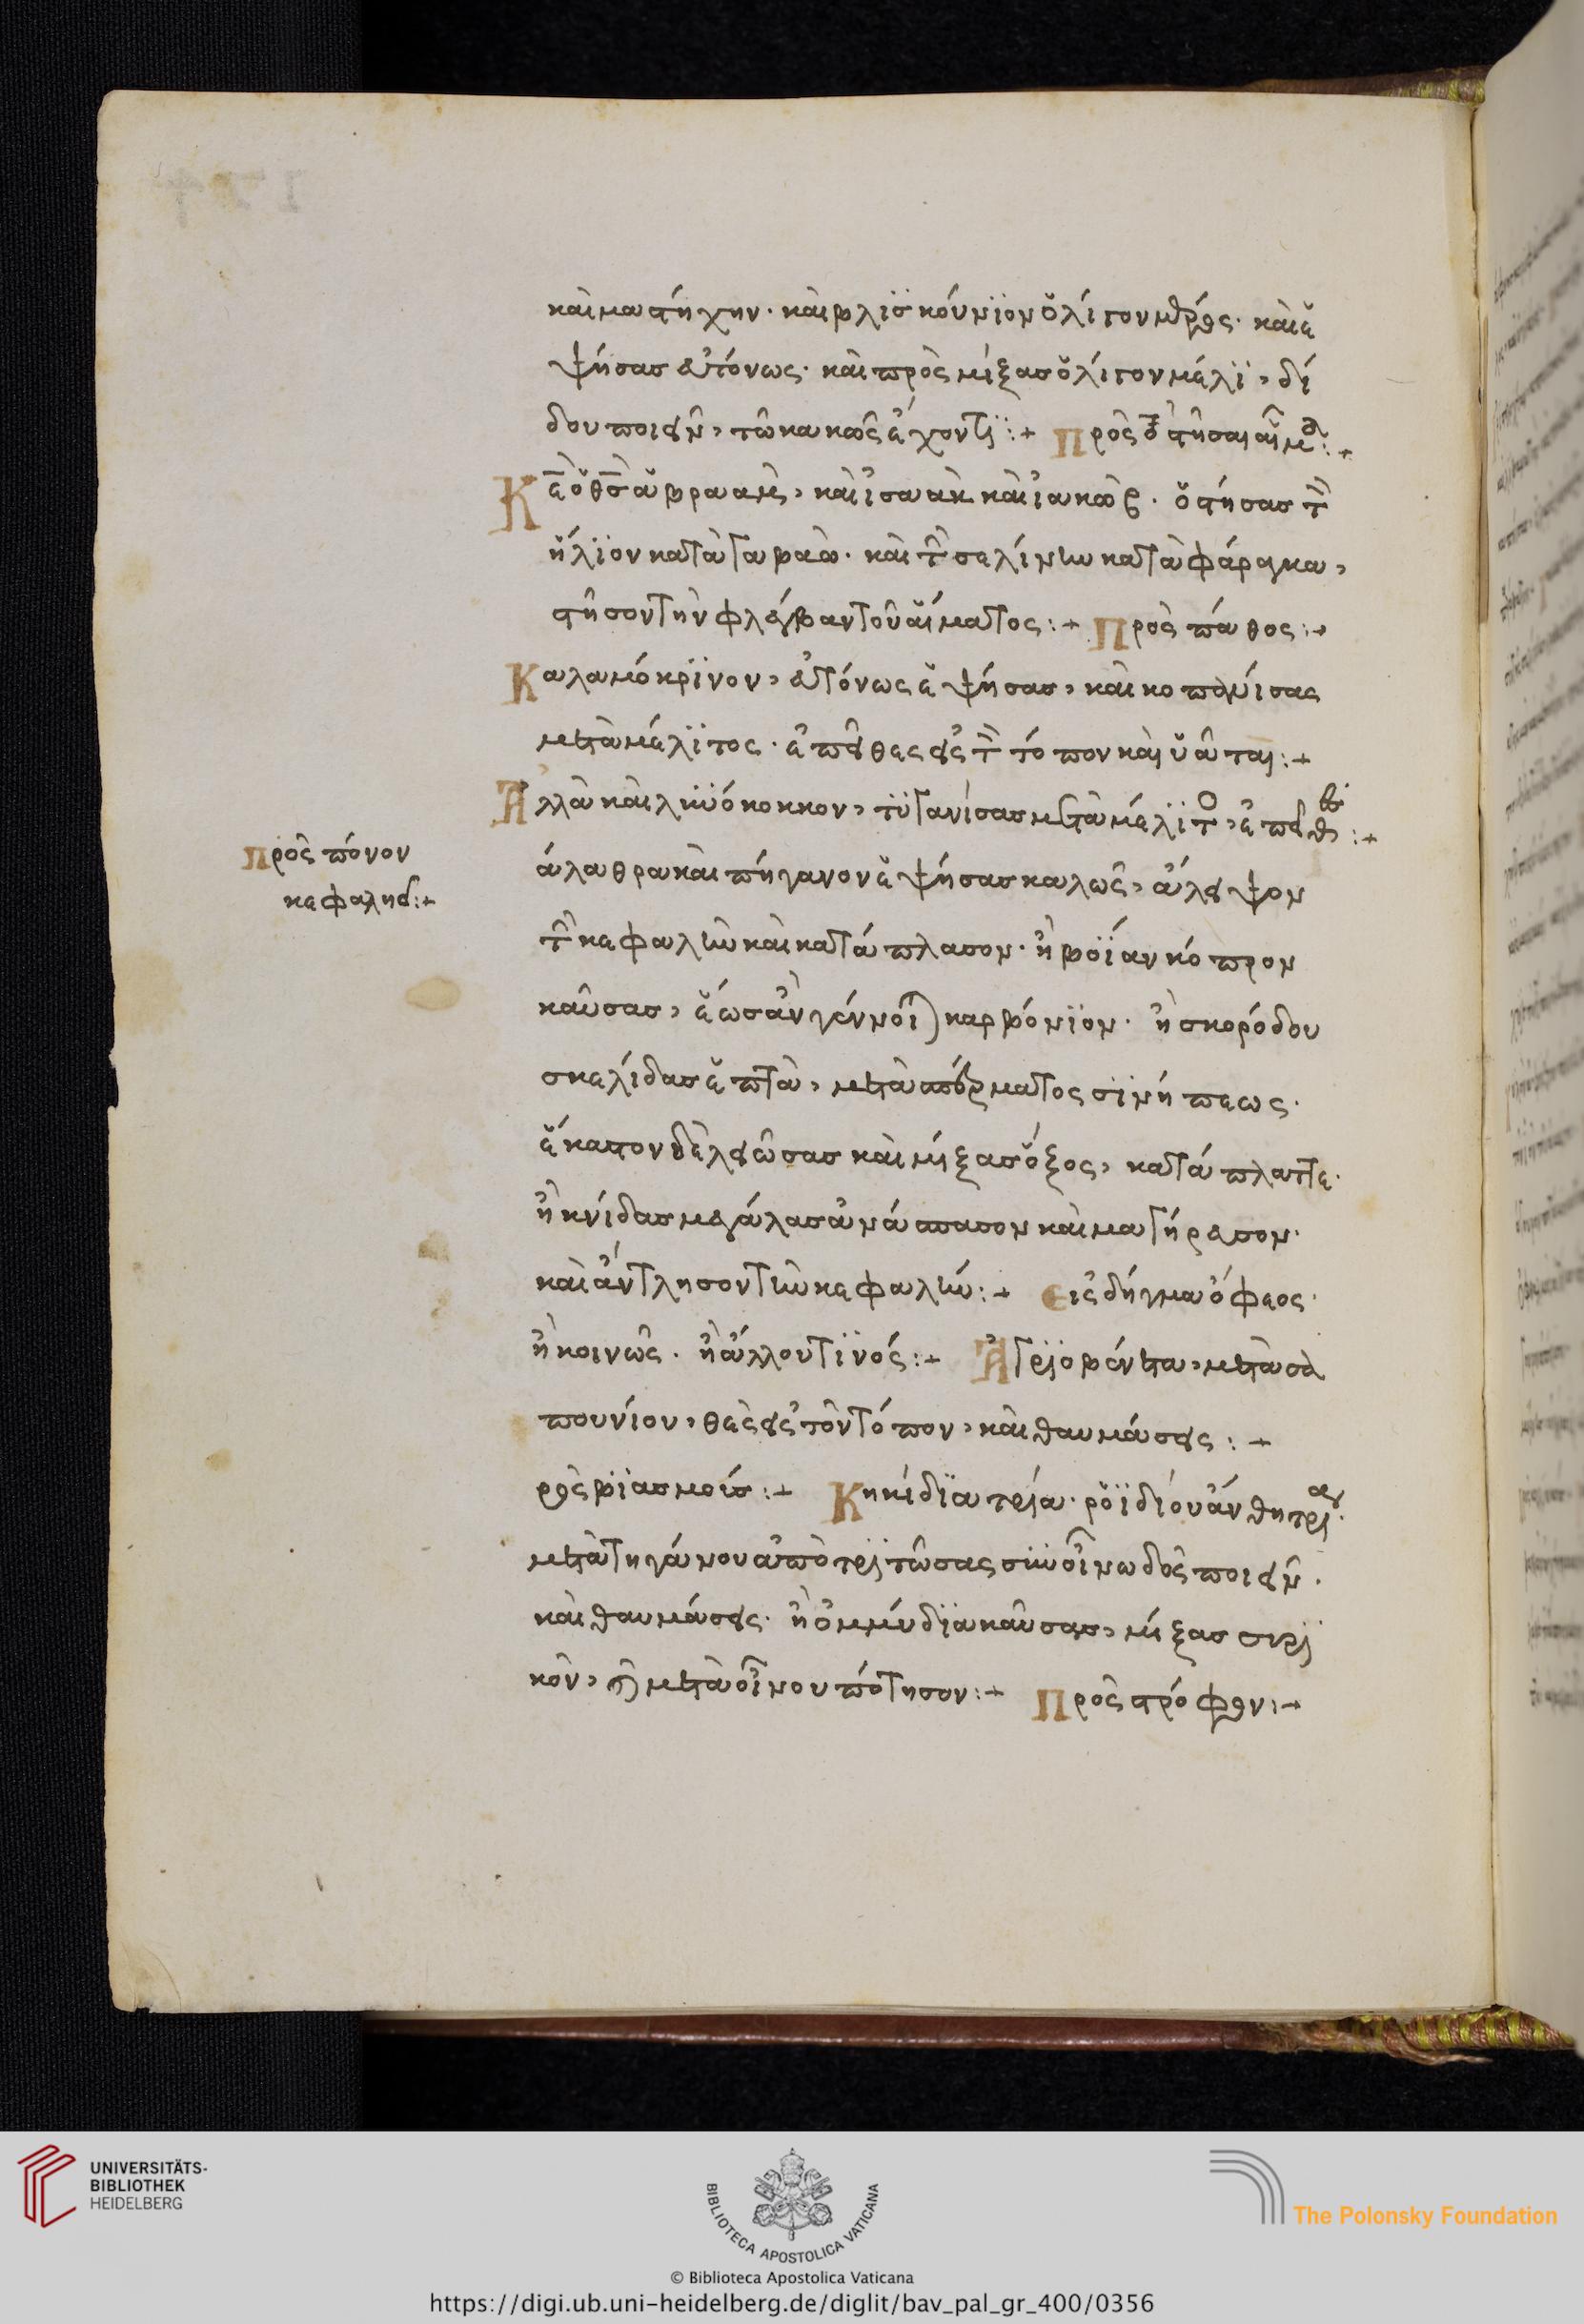 καὶ μαστήχην· καὶ βλισκούνϊον ὀλίγον μέρος· καὶ ἑ
ψήσας εὐτόνως· καὶ πρὸς μίξας ὀλίγον μέλϊ, δί
δου ποιεῖν, τῶ κακῶς ἔχοντϊ :+ Πρὸς τὸ στῆσαι αἷμα :+
Κε ὁ θς ἀβραὰμ, καὶ ἰσαὰκ καὶ ἰακώβ· ὁ στήσας τὸν
ἥλϊον κατὰ γαβαὼ· καὶ τὴν σελίνην κατὰ φάραγκα,
στῆσον τὴν φλέβαν τοῦ αἵματος :+ Πρὸς πάθος :+
Καλαμόκρϊνον, εὐτόνως ἑψήσας, καὶ κοπανίσας
μετὰ μέλϊτος· ἐπίθες εἰς τὸν τόπον καὶ ἰᾶται :+
Ἀλλὰ καὶ λινόκοκκον, τϋγανίσας μετὰ μέλϊτος, ἐπίθες :+
Πρὸς πόνον
κεφαλης :+
άλαθρα καὶ πήγανον ἑψήσας καλῶς, ἄλειψον
τὴν κεφαλὴν καὶ κατάπλασον· ἢ βοΐαν κόπρον
καῦσας, ἕως ἂν γένηται καρβόνϊον· ἢ σκορόδου
σκελίδας ἑπτὰ, μετὰ σπέρματος σϊνήπεως·
ἕκαστον λειῶσας καὶ μίξας ὄξος, κατάπλαττε·
ἢ κνίδας μεγάλας ἀνάσπασον καὶ μαγήρευσον·
καὶ ἄντλησον τὴν κεφαλήν :+ Εἰς δῆγμα ὄφεος·
ἢ κοινῶς· ἢ ἄλλου τϊνός :+ Ἀγριοβένετα, μετὰ σα
πουνίου, θὲς εἰς τὸν τόπον, καὶ θαυμάσεις :+
ρος βϊασμοίς :+ Κηκίδϊα τρία· ῥοϊδίου ἄνθη τρία·
μετὰ πηγάνου ἀπὸ τρϊτῶσας σὺν οἴνω δὸς ποιεῖν·
καὶ θαυμάσεις· ἢ ὀμμύδϊα καῦσας, μίξας συρι
κὸν, καὶ μετὰ οἴνου πότησον :+ Πρὸς στρόφον :+
UNIVERSITÄTS-
BIBLIOTHEK
HEIDELBERG
BIBLIOTECA APOSTOLICA VATICANA
The Polonsky Foundation
© Biblioteca Apostolica Vaticana
https://digi.ub.uni-heidelberg.de/diglit/bav_pal_gr_400/0356